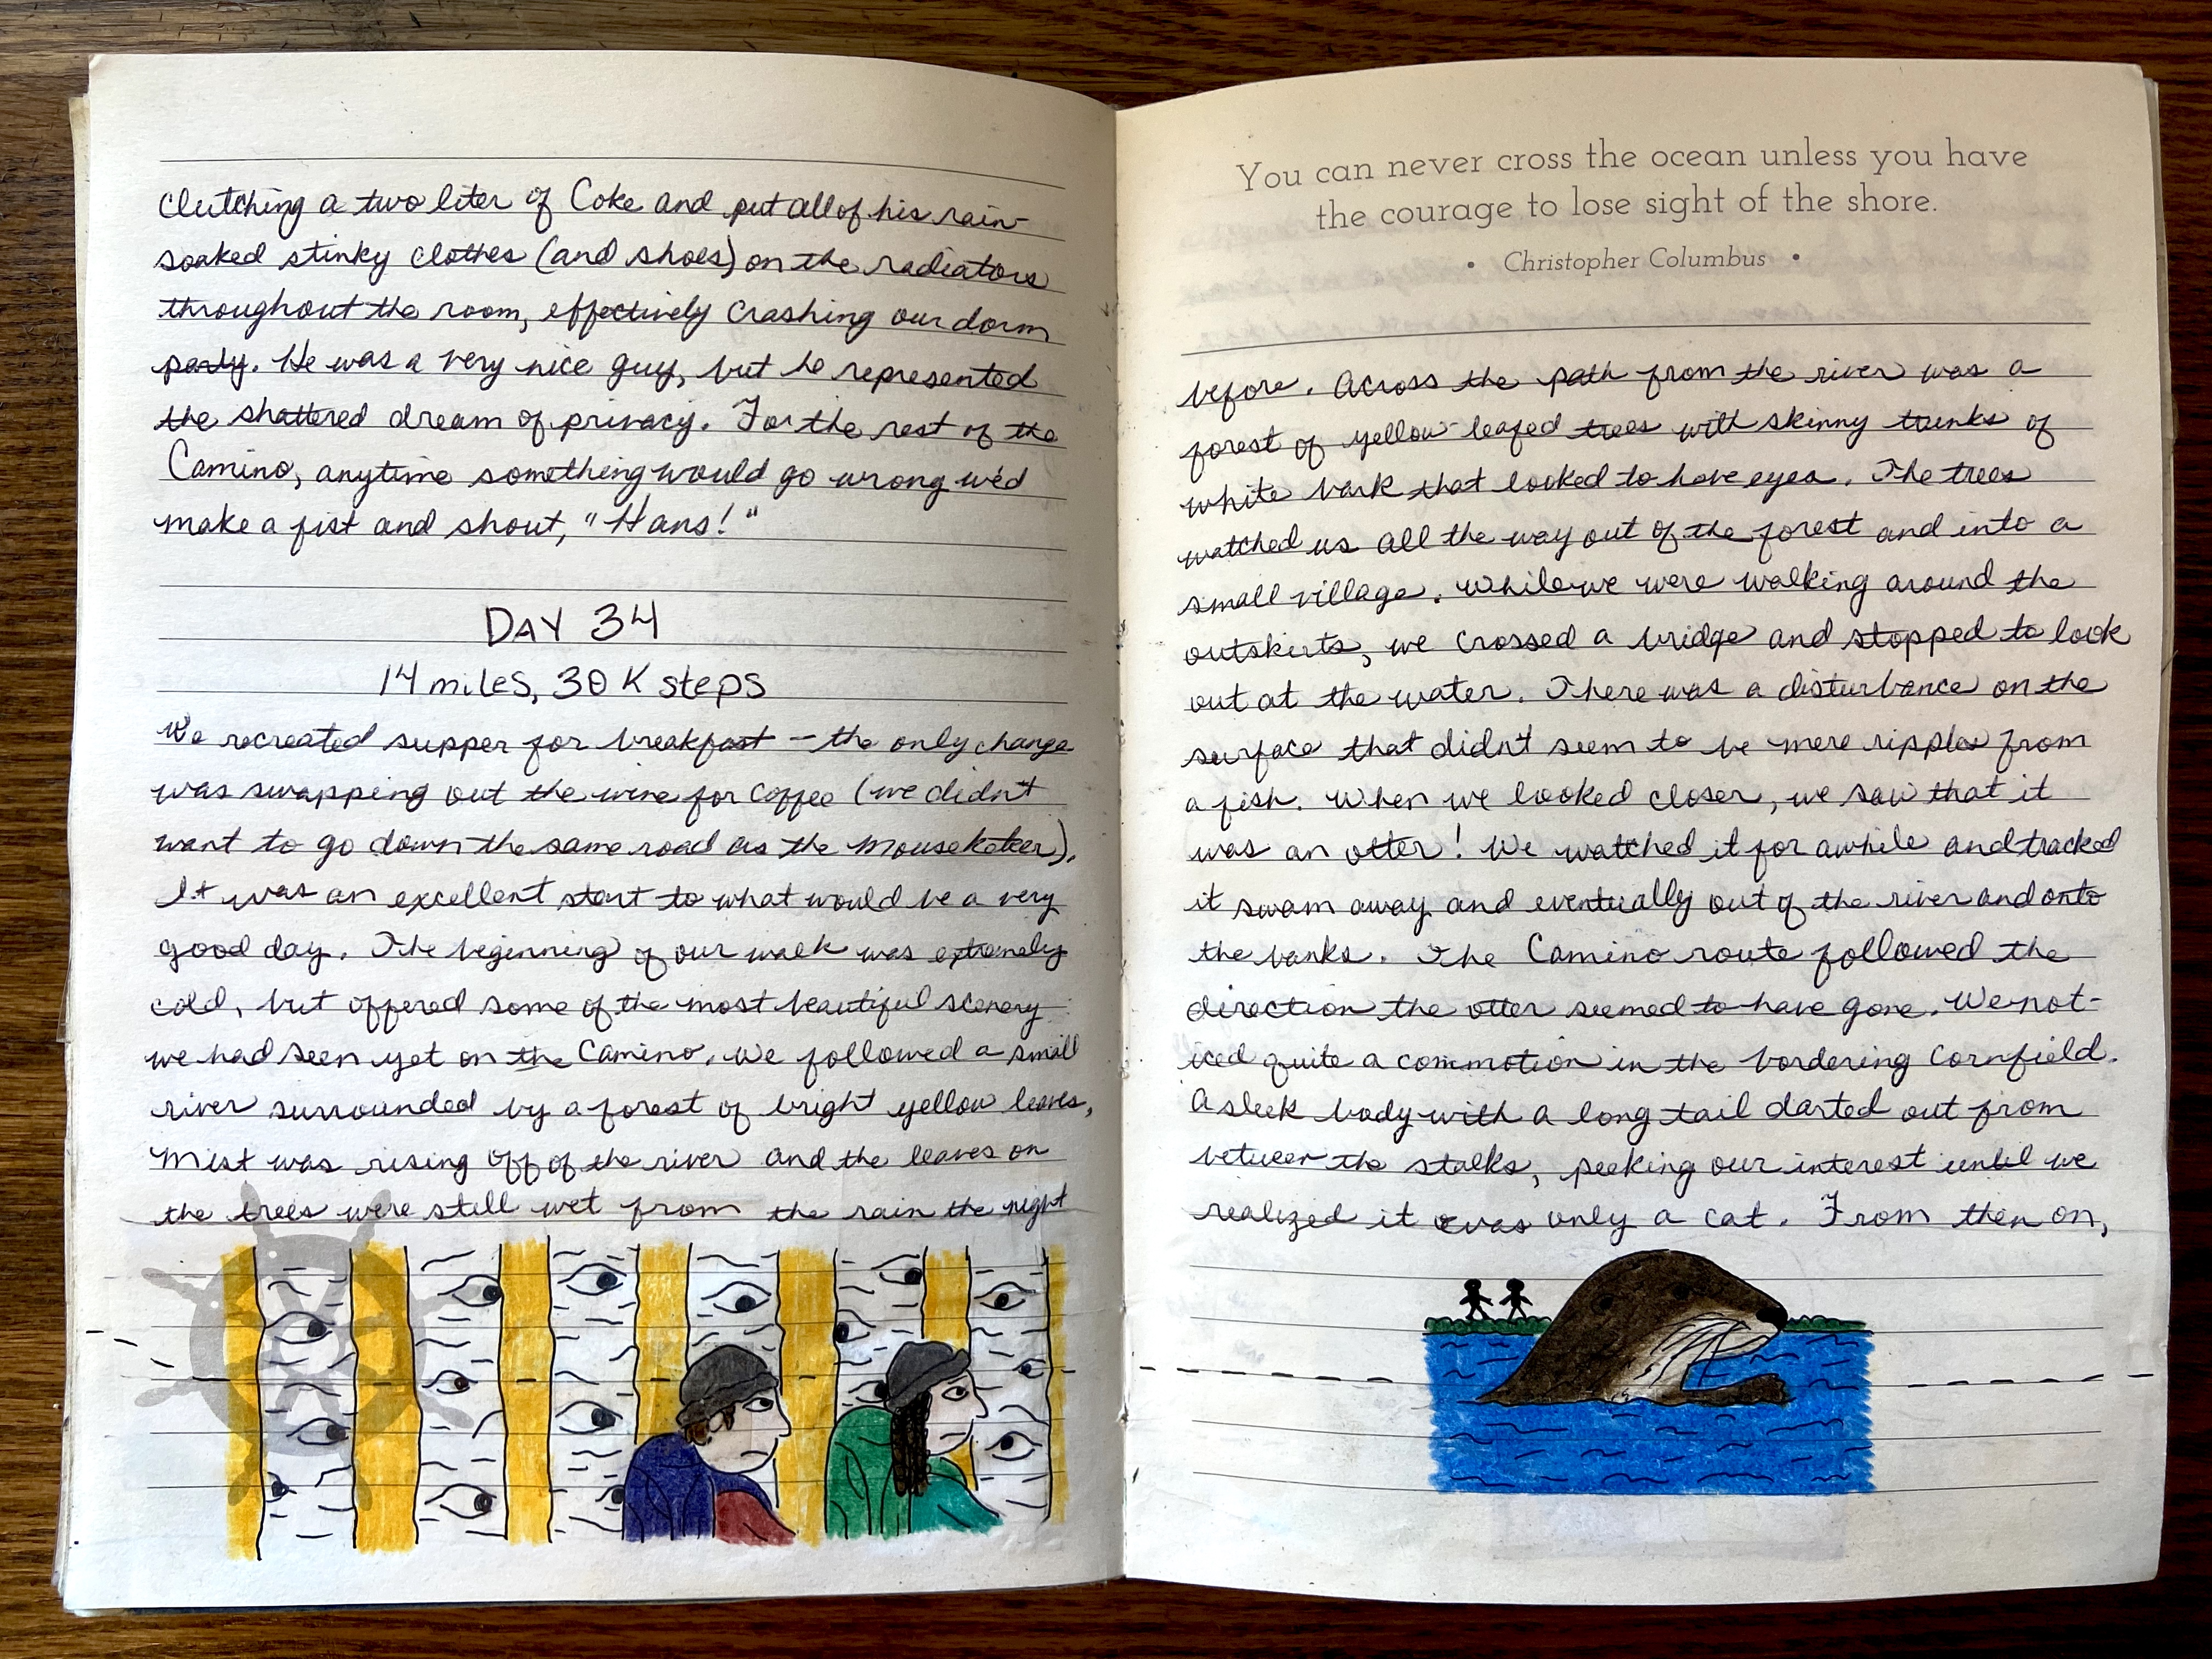 clutching a two liter of Coke and put all of his rain-
soaked stinky clothes (and shoes) on the radiators
throughout the room, effectively crashing our dorm
party. He was a very nice guy, but he represented
the shattered dream of privacy. For the rest of the
Camino, anytime something would go wrong we'd
make a fist and shout, "Hans!"
DAY 34
14 miles, 30K steps
We recreated supper for breakfast – the only change
was swapping out the wine for coffee (we didn't
want to go down the same road as the Mouseketeer).
It was an excellent start to what would be a very
good day. The beginning of our walk was extremely
cold, but offered some of the most beautiful scenery
we had seen yet on the Camino. We followed a small
river surrounded by a forest of bright yellow leaves.
Mist was rising off of the river and the leaves on
the trees were still wet from the rain the night
You can never cross the ocean unless you have
the courage to lose sight of the shore.
• Christopher Columbus •
before. Across the path from the river was a
forest of yellow-leafed trees with skinny trunks of
white bark that looked to have eyes. The trees
watched us all the way out of the forest and into a
small village. While we were walking around the
outskirts, we crossed a bridge and stopped to look
out at the water. There was a disturbance on the
surface that didn't seem to be mere ripples from
a fish. When we looked closer, we saw that it
was an otter! We watched it for awhile and tracked
it swam away and eventually out of the river and onto
the banks. The Camino route followed the
direction the otter seemed to have gone. We not-
iced quite a commotion in the bordering cornfield.
A sleek body with a long tail darted out from
between the stalks, peeking our interest until we
realized it was only a cat. From then on,